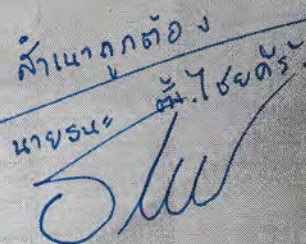 สำเนาถูกต้อง
นายธนะ ตั้. ไชยคีรี